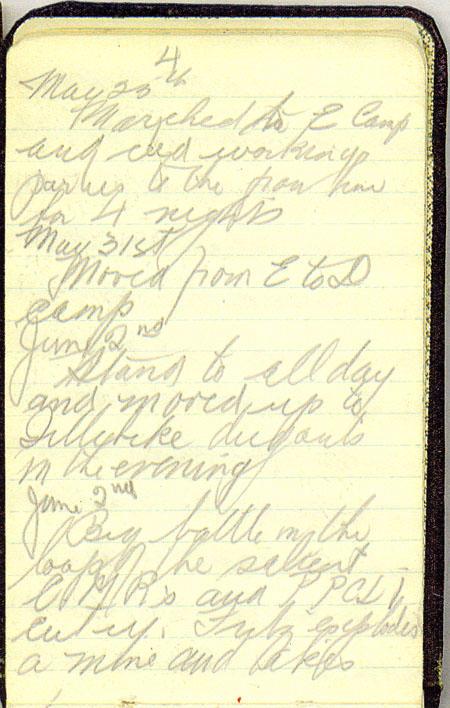 4
May 25th
Marched to E Camp
and did working
parties to the front line
for 4 nights
May 31st
Moved from E to D
camp
June 2nd
Stand to all day
and moved up to
dugouts
in the evening
June 2nd
Big battle in the
loop of the salient
C.M.R's and PPCLI
cut up. Fritz explodes
a mine and takes